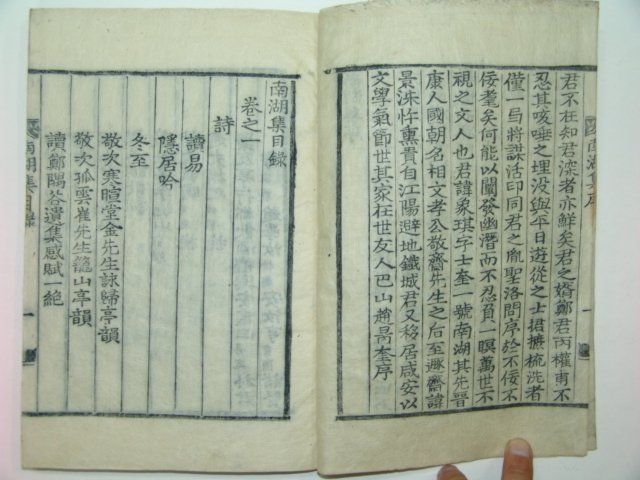 君不在知君深者亦鮮矣君之婿鄭君丙權甫不
忍其咳唾之埋没與平日遊從之士君摭梳洗者
僅一弓將謀活印同君之胤聖洛問序於不佞不
佞耄矣何能以闡發幽潛而不忍負一瞑萬世不
視之文人也君諱象琪字士奎一號南湖其先晉
康人國朝名相文孝公敬齋先生之后至遯齋諱
景洙忤熏貴自江陽避地鐵城君又移居咸安以
文學氣節世其家在世友人巴山趙昺奎序
南湖集序
南湖集目録
卷之一
詩
讀易
隱居吟
冬至
敬次寒暄堂金先生詠歸亭韻
敬次孤雲崔先生籠山亭韻
讀鄭隅谷遺集感賦一絶
南湖集目録
一